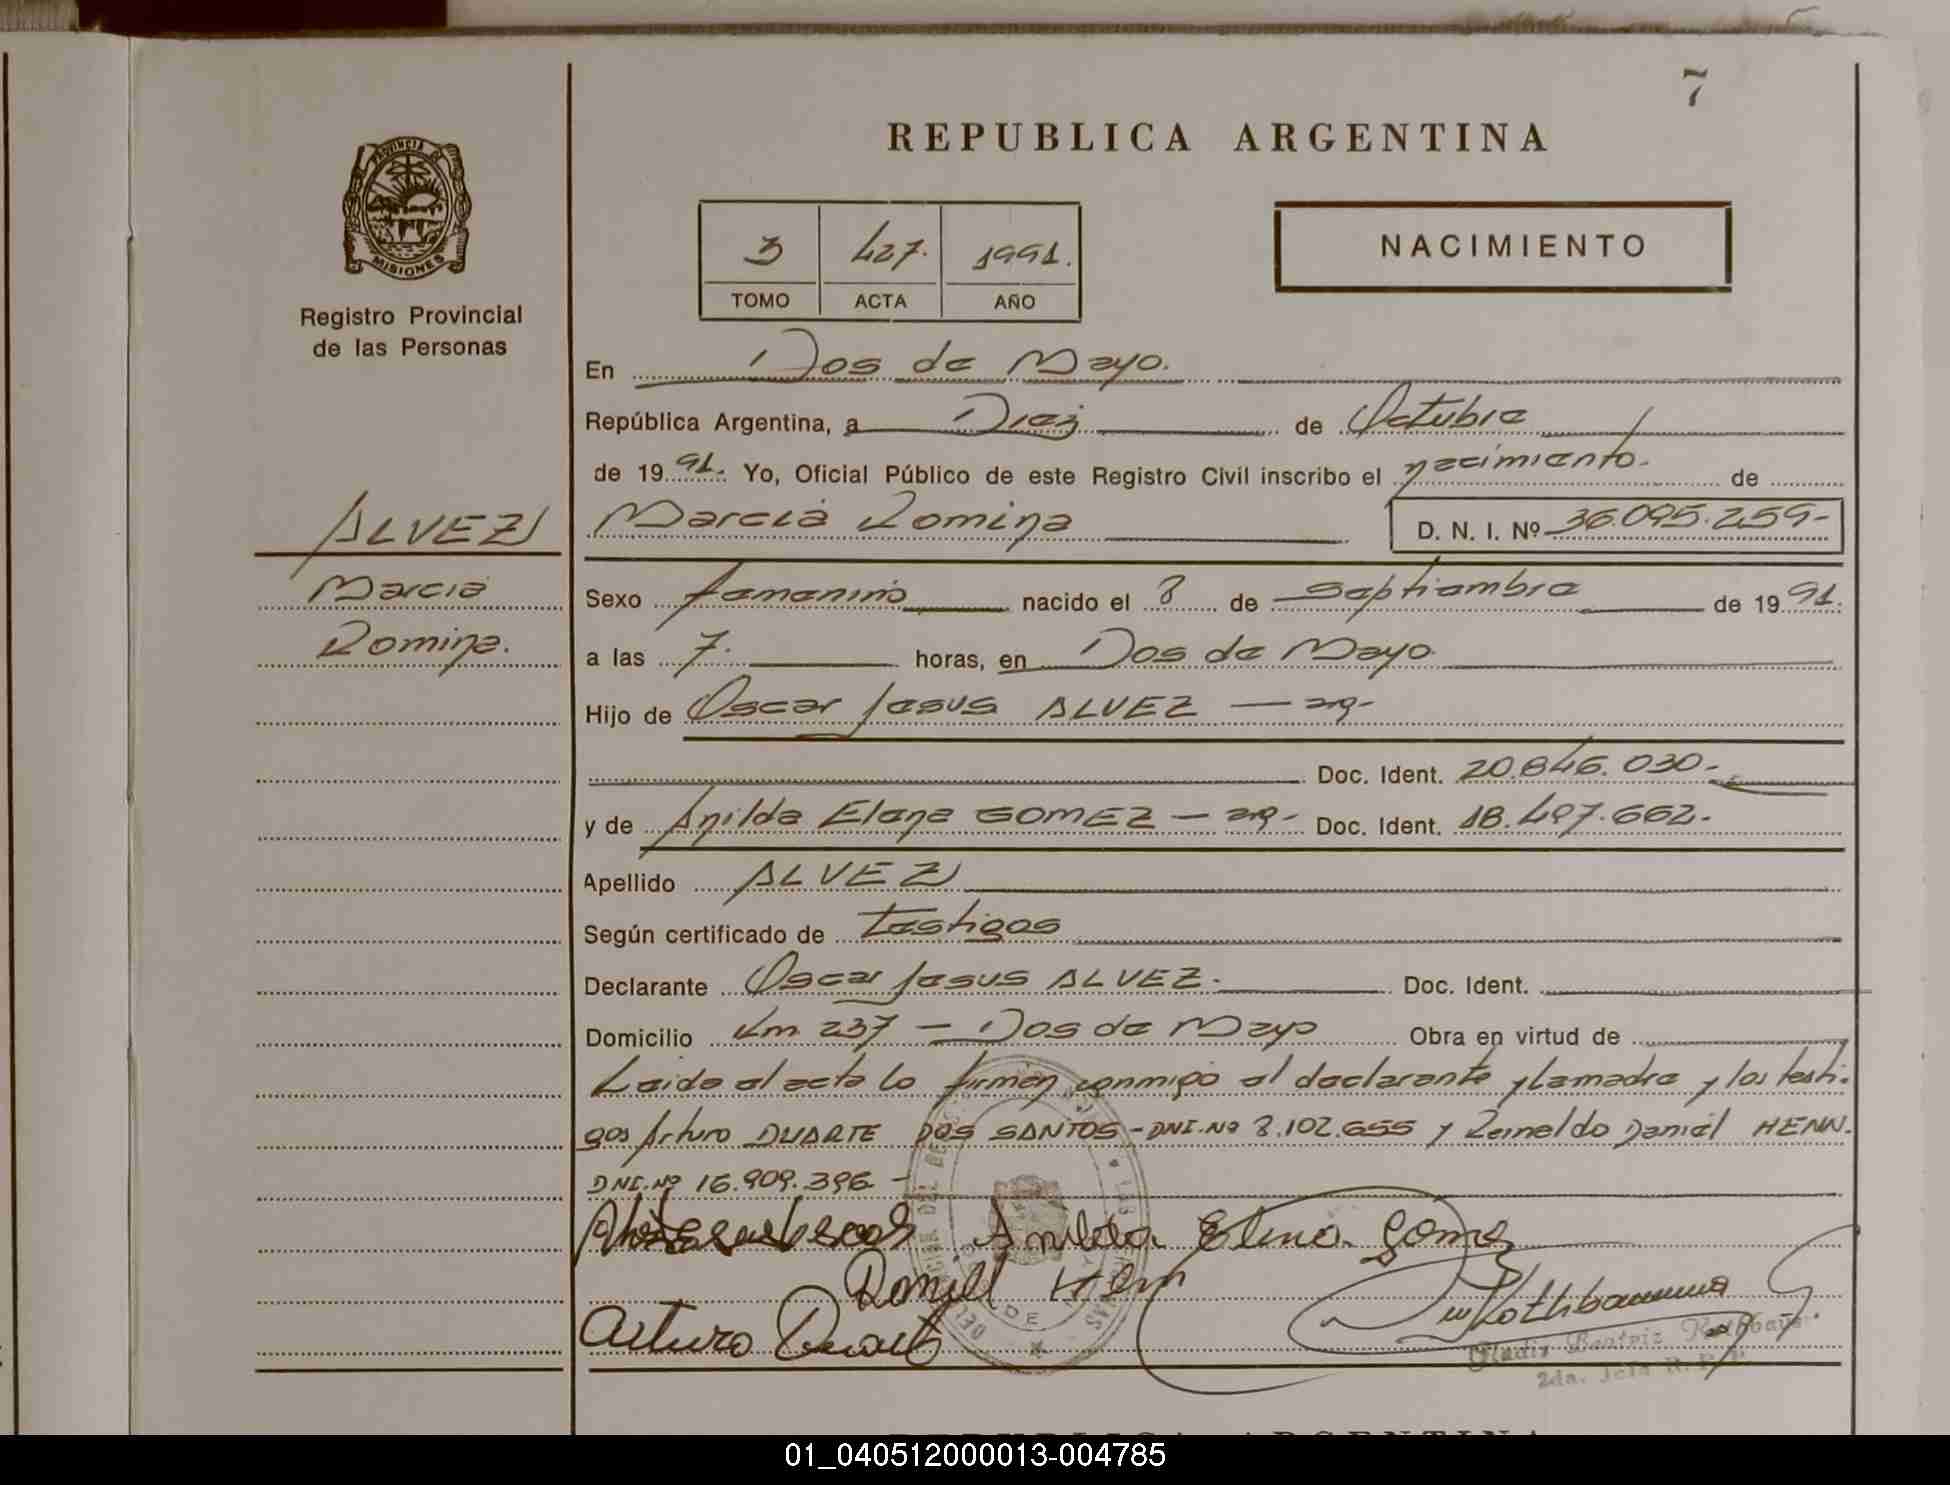 7
REPUBLICA ARGENTINA
PROVINCIA DE
MISIONES
Registro Provincial
de las Personas
3 427. 1991.
TOMO ACTA AÑO
NACIMIENTO
En Dos de Mayo.
República Argentina, a Diez de Octubre
de 1991. Yo, Oficial Público de este Registro Civil inscribo el nacimiento. de
ALVEZ
Marcia
Romina.
Marcia Romina D. N. I. Nº 36.095.259-
Sexo femenino nacido el 8 de septiembre de 1991.
a las 7. horas, en Dos de Mayo.
Hijo de Oscar Jesus ALVEZ — arg-
Doc. Ident. 20.846.030-
y de Anilda Elena GOMEZ — arg- Doc. Ident. 18.497.662.
Apellido ALVEZ
Según certificado de testigos
Declarante Oscar Jesus ALVEZ. Doc. Ident.
Domicilio Km 237 — Dos de Mayo Obra en virtud de
Leida el acta lo firman conmigo el declarante y la madre y los testi-
gos Arturo DUARTE DOS SANTOS - DNI.Nº 8.102.655 y Reineldo Daniel HENN.
DNI.Nº 16.909.396. -
Anilda Elena Gomez
Daniel Henn
Arturo Duarte
Rothbaum
Gladis Beatriz
2da. Jefa R. P.
REPUBLICA ARGENTINA
01_040512000013-004785